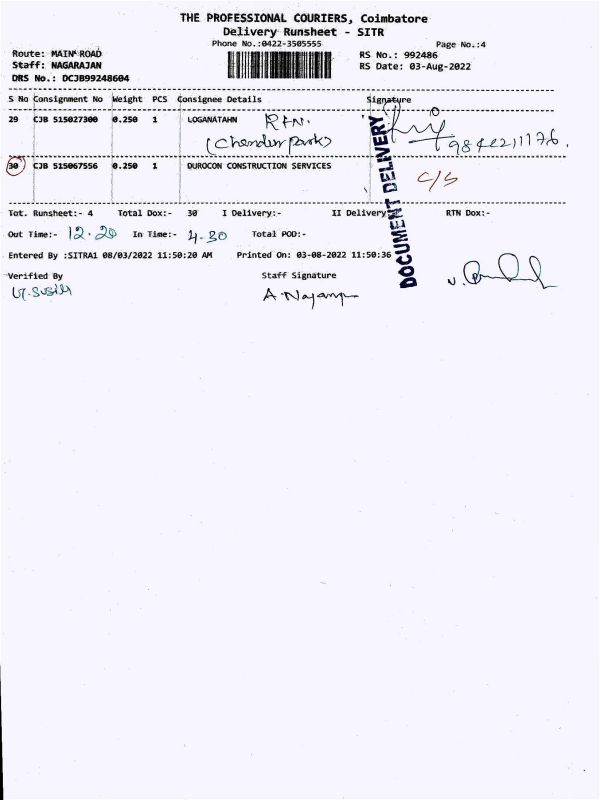 THE PROFESSIONAL COURIERS, Coimbatore
Delivery Runsheet - SITR
Phone No.:0422-3505555 Page No.:4
Route: MAIN ROAD RS No.: 992486
Staff: NAGARAJAN RS Date: 03-Aug-2022
DRS No.: DCJB99248604
S No Consignment No Weight PCS Consignee Details Signature
29 CJB 515027300 0.250 1 LOGANATAHN
(Chender Park)
30 CJB 515067556 0.250 1 DUROCON CONSTRUCTION SERVICES C/S
DOCUMENT DELIVERY
Tot. Runsheet:- 4 Total Dox:- 30 I Delivery:- II Delivery RTN Dox:-
Out Time:- 12.20 In Time:- 4.30 Total POD:-
Entered By :SITRA1 08/03/2022 11:50:20 AM Printed On: 03-08-2022 11:50:36
Verified By Staff Signature